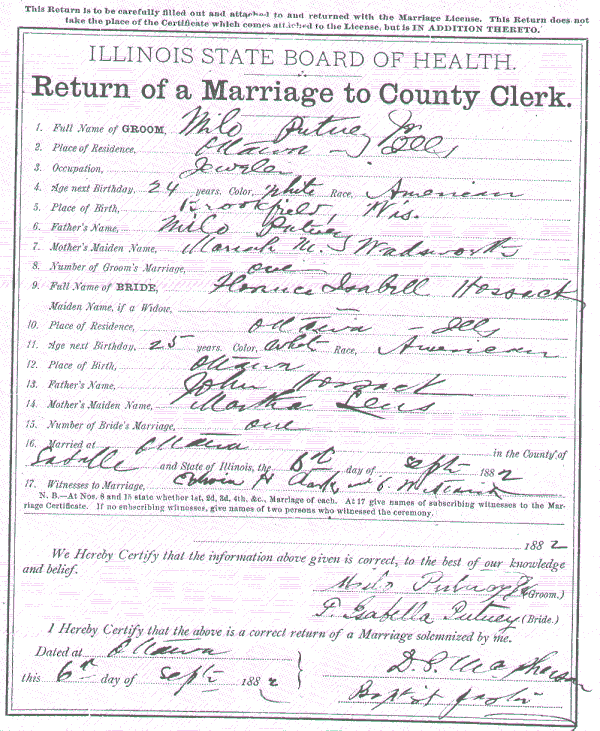 This Return is to be carefully filled out and attached to and returned with the Marriage License. This Return does not
take the place of the Certificate which comes attached to the License, but is IN ADDITION THERETO.
ILLINOIS STATE BOARD OF HEALTH.
Return of a Marriage to County Clerk.
1. Full Name of GROOM, Milo Putney Jr
2. Place of Residence, Ottawa Ills
3. Occupation, Jeweler
4. Age next Birthday, 24 years. Color, white Race, American
5. Place of Birth, Brookfield, Wis.
6. Father's Name, Milo Putney
7. Mother's Maiden Name, Mariah M. Wadsworth
8. Number of Groom's Marriage, one
9. Full Name of BRIDE, Florence Isabell Hossack
Maiden Name, if a Widow, —
10. Place of Residence, Ottawa - Ills
11. Age next Birthday, 25 years. Color, white Race, American
12. Place of Birth, Ottawa
13. Father's Name, John Hossack
14. Mother's Maiden Name, Martha Lens
15. Number of Bride's Marriage, one
16. Married at Ottawa in the County of
LaSalle and State of Illinois, the 6th day of Sept 1882
17. Witnesses to Marriage, Edwin H and
N. B.—At Nos. 8 and 15 state whether 1st, 2d, 3d, 4th, &c., Marriage of each. At 17 give names of subscribing witnesses to the Mar-
riage Certificate. If no subscribing witnesses, give names of two persons who witnessed the ceremony.
1882
We Hereby Certify that the information above given is correct, to the best of our knowledge
and belief.
Milo Putney Jr (Groom.)
F. Isabella Putney (Bride.)
I Hereby Certify that the above is a correct return of a Marriage solemnized by me.
Dated at Ottawa
this 6th day of Sept 1882
D. S. McPherson
Baptist pastor